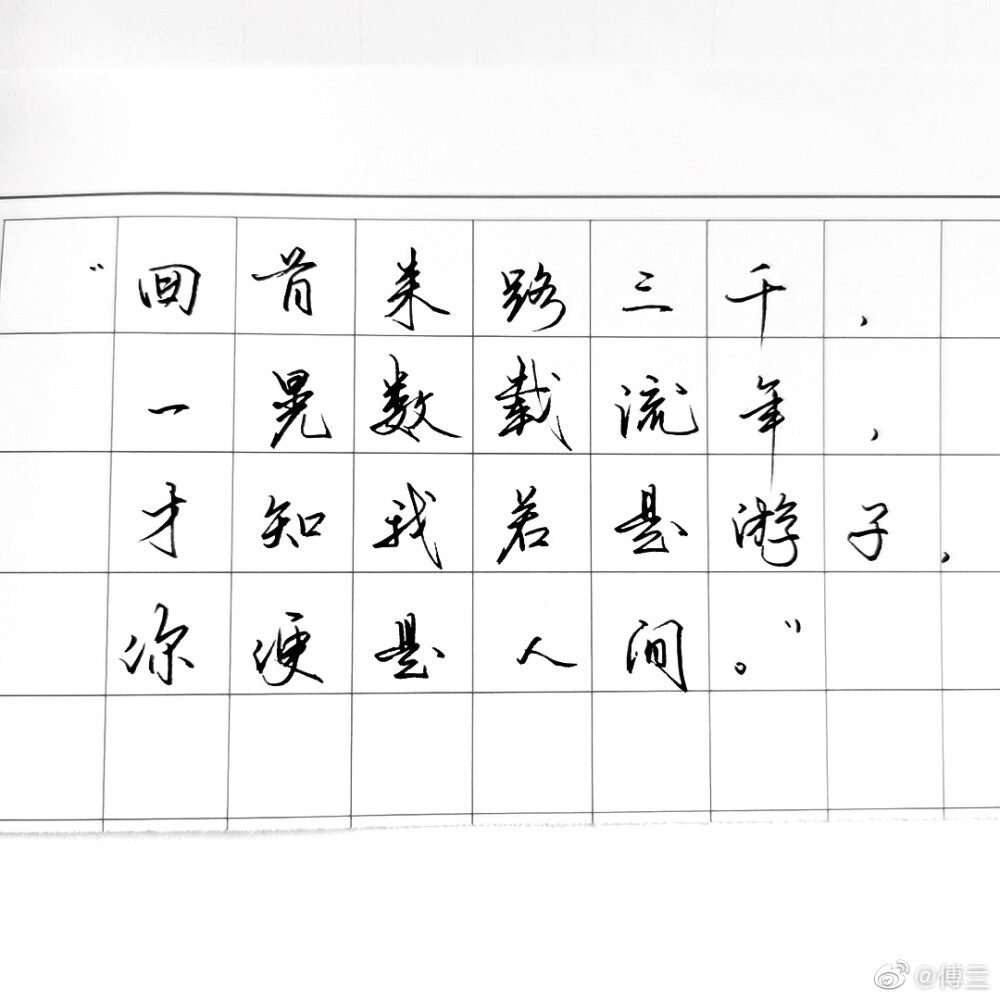 “回首来路三千，
一晃数载流年，
才知我若是游子，
你便是人间。”
@傅三